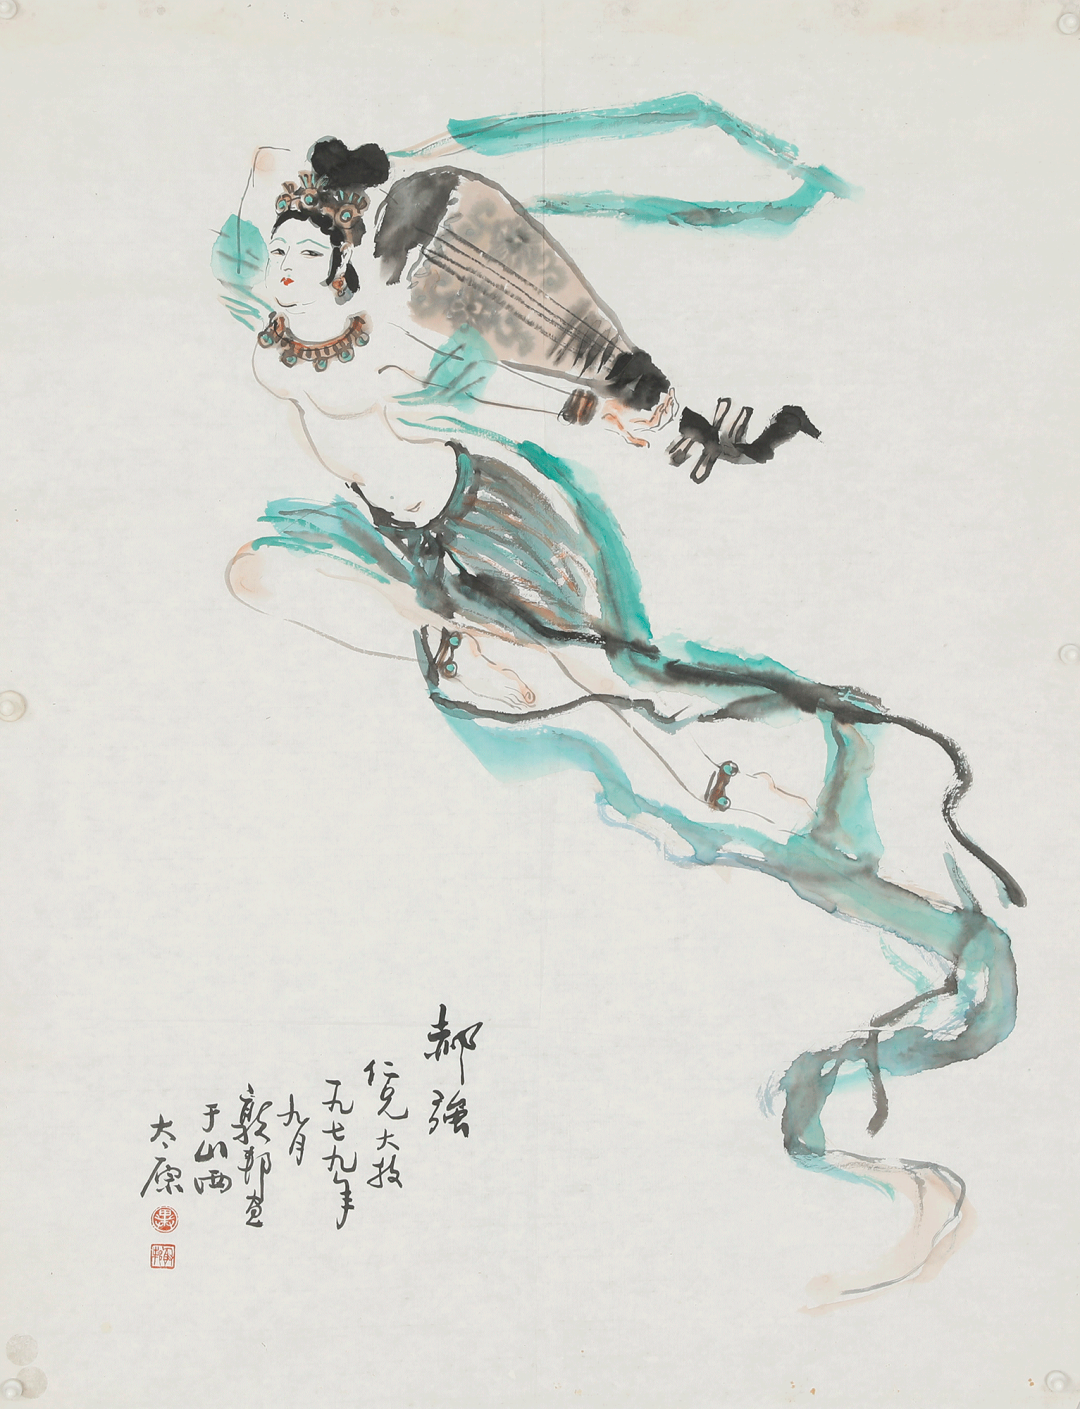 郝强
仁兄大技
一九七九年
九月
敦邦画
于山西
太原